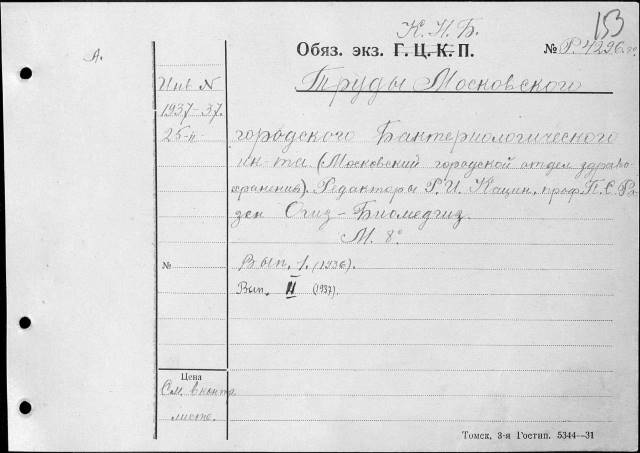 153
К. Н. Б.
Обяз. экз. Г. Ц. К. П.
№ Р. 4296
А.
Инв N
Труды Московского
1937-37.
25-II-
городского Бактериологического
ин-та (Московский городской отдел здраво-
охранения). Редакторы Р. И. Кацин, проф. П. С. Ро-
зен Огиз-Биомедгиз.
М. 8°
№
Вып. 1. (1936).
Вып. II (1937).
Цена
См. в конт.
листе.
Томск, 3-я Гостип. 5344—31